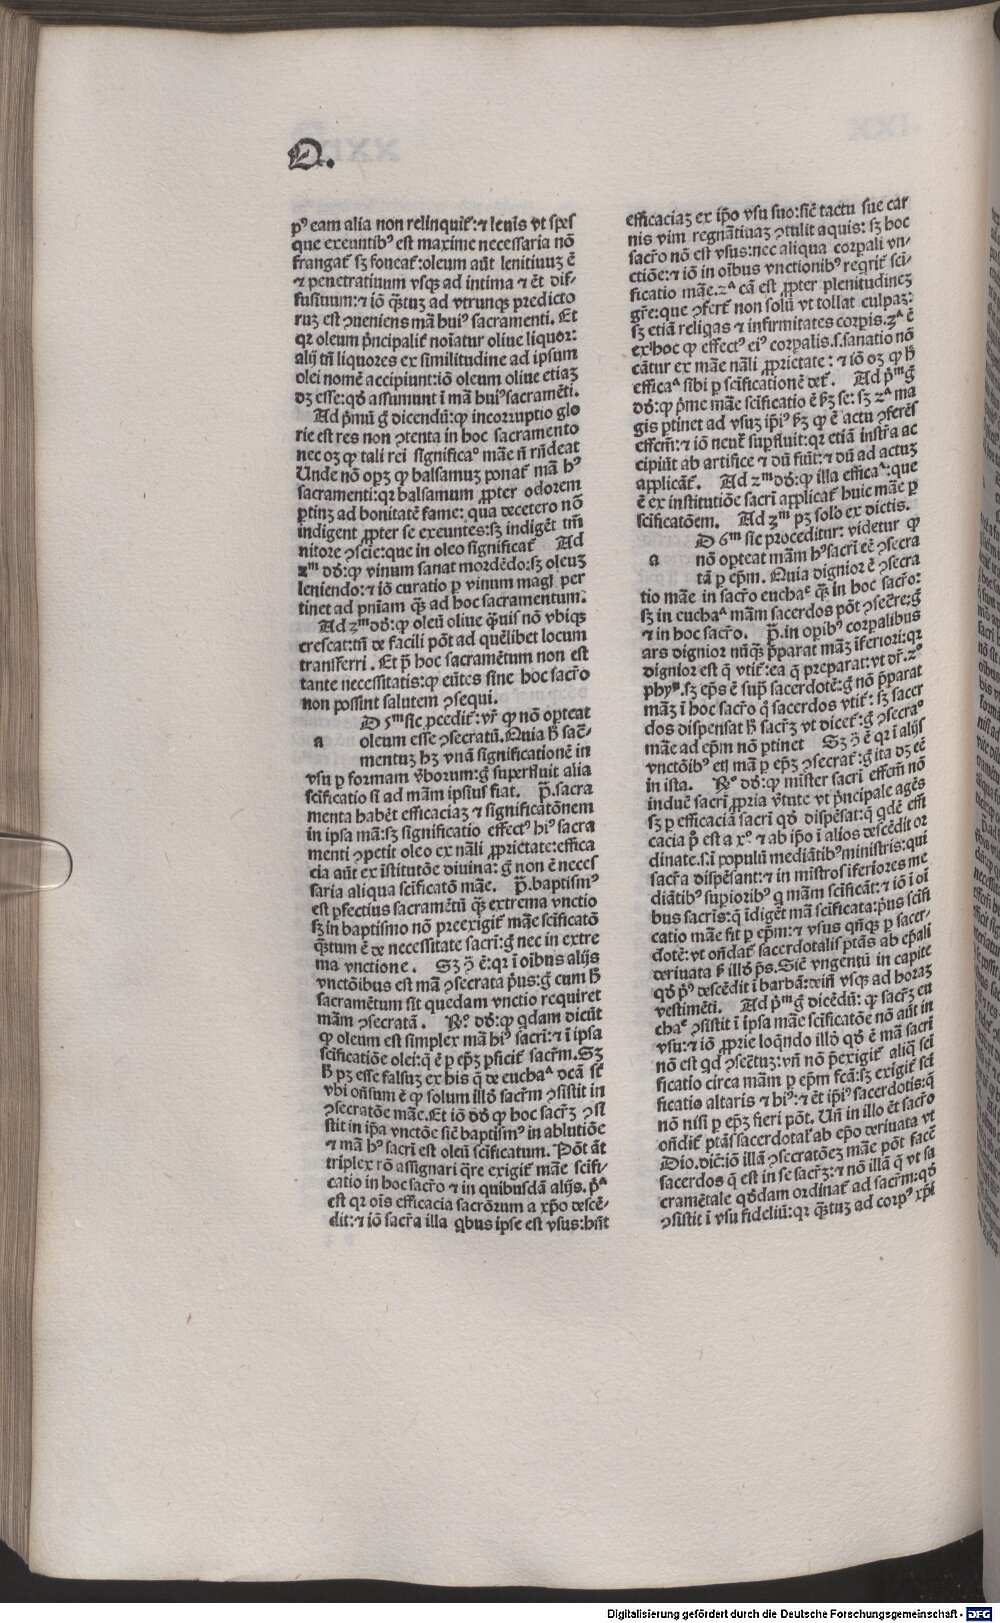 Q.
pꝰ eam alia non relinquit᷑:⁊ leuis vt spes
que exeuntibꝰ est maxime necessaria nō
frangat᷑ sꝫ foueat᷑:oleum aūt lenitiuuꝫ ē
⁊ penetratiuum vsqꝫ ad intima ⁊ ēt dif-
fusiuum:⁊ iō qᷓꝫtuꝫ ad vtrunqꝫ predicto
ruꝫ est ꝯueniens mā huiꝰ sacramenti. Et
qꝛ oleum pͥncipalit᷑ noīatur oliue liquor:
alij tn̄ liquores ex similitudine ad ipsum
olei nomē accipiunt:iō oleum oliue etiaꝫ
dꝫ esse:qd̛ assumunt ī mā huiꝰ sacramēti.
Ad pͥmū gͦ dicendū:ꝙ incorruptio glo
rie est res non ꝯtenta in hoc sacramento
nec oꝫ ꝙ tali rei significaᵒ māe n̄ rn̄deat
Unde nō opꝫ ꝙ balsamuꝫ ponat᷑ mā hꝰ
sacramenti:qꝛ balsamum ꝓpter odorem
ꝑtinꝫ ad bonitatē fame: qua decetero nō
indigent ꝓpter se exeuntes:sꝫ indigēt tm̄
nitore ꝯscie:que in oleo significat᷑ Ad
2ᵐ dd̛:ꝙ vinum sanat mordēdo:sꝫ oleuꝫ
leniendo:⁊ iō curatio ꝑ vinum magl̛ per
tinet ad pn̄iam qᷓꝫ ad hoc sacramentum.
Ad 3ᵐ dd̛:ꝙ oleū oliue qͣuis nō vbiqꝫ
crescat:tn̄ de facili pōt ad quēlibet locum
transferri. Et p̄ hoc sacramētum non est
tante necessitatis:ꝙ eūtes sine hoc sacr̄o
non possint salutem ꝯsequi.
AD 5ᵐ sic ꝓcedit᷑:vr̄ ꝙ nō opteat
a oleum esse ꝯsecratū. Quia hͦ sac̄-
mentuꝫ hꝫ vnā significationē in
vsu ꝑ formam ꝟborum:gͦ superfluit alia
scificatio si ad mām ipsius fiat. P̄.sacra
menta habēt efficaciaꝫ ⁊ significatōnem
in ipsa mā:sꝫ significatio effectꝰ hiꝰ sacra
menti ꝯpetit oleo ex nāli ꝓprietate:effica
cia aūt ex īstitutōe diuina: gͦ non ē neces
saria aliqua scificatō māe. P̄.baptismꝰ
est ꝑfectius sacramētū qᷓꝫ extrema vnctio
sꝫ in baptismo nō preexigit᷑ māe scīficatō
qᷓꝫtum ē de necessitate sacri:gͦ nec in extre
ma vnctione. Sꝫ ꝯͣ ē:qꝛ ī oībus alijs
vnctōibus est mā ꝯsecrata pͥus:gͦ cum hͦ
sacramētum sit quedam vnctio requiret
mām ꝯsecratā. Rͦ. dd̛:ꝙ qͥdam dicūt
ꝙ oleum est simplex mā hiꝰ sacri:⁊ ī ipsa
scīficatiōe olei:q̄ ē ꝑ ep̄ꝫ ꝑficit᷑ sacr̄m. Sꝫ
hͦ pꝫ esse falsuꝫ ex his q̄ de euchaᵃ dcā sr̄
vbi on̄sum ē ꝙ solum illd̛ sacr̄m ꝯsistit in
ꝯsecratōe māe. Et iō dd̛ ꝙ hoc sacr̄ꝫ ꝯsi
stit in ip̄a vnctōe sic̄ baptismꝰ in ablutiōe
⁊ mā hꝰ sacri est oleū scīficatum. Pōt āt
triplex rō assignari qͣre exigit᷑ māe scīfi-
catio in hoc sacr̄o ⁊ in quibusdā alijs. pͥᵃ
est qꝛ ois efficacia sacrōrum a xp̄o descē-
dit:⁊ iō sacr̄a illa qͥbus ipse est vsus:hn̄t
efficaciaꝫ ex ip̄o vsu suo:sic̄ tactu sue car
nis vim regn̄atiuaꝫ ꝯtulit aquis: sꝫ hoc
sacr̄o nō est vsus:nec aliqua corꝑali vn-
ctiōe:⁊ iō in oībus vnctionibꝰ reqrit᷑ sci-
ficatio māe.2ᵃ cā est ꝓpter plenitudineꝫ
gr̄e:que ꝯfert᷑ non solū vt tollat culpaꝫ:
sꝫ etiā reliqas ⁊ infirmitates corꝑis.3ᵃ ē
ex hoc ꝙ effectꝰ eiꝰ corꝑalis.s.sanatio nō
cātur ex māe nāli ꝓprietate: ⁊ iō oꝫ ꝙ hͦ
efficaᵃ sibi ꝑ scīficationē det᷑. Ad pͥmᵐ gͦ
dd̛:ꝙ pͥme māe scīficatio ē hꝫ se: sꝫ 2ᵃ ma
gis ꝑtinet ad vsuꝫ ip̄iꝰ hꝫ ꝙ ē actu ꝯferēs
effcm̄:⁊ iō neut᷑ suꝑfluit:qꝛ etiā instr̄a ac
cipiūt ab artifice ⁊ dū fiūt:⁊ dū ad actuꝫ
applicāt᷑. Ad 2ᵐ dd̛:ꝙ illa efficaᵃ:que
ē ex institutiōe sacri applicat᷑ huic māe ꝑ
scificatōem. Ad 3ᵐ pꝫ solo ex dictis.
AD 6ᵐ sic proceditur: videtur ꝙ
a nō opteat mām hꝰ sacri eē ꝯsecra
tā ꝑ ep̄m. Quia dignior ē ꝯsecra
tio māe in sacr̄o euchaᵉ qᷓꝫ in hoc sacr̄o:
sꝫ in euchaᵃ mām sacerdos pōt ꝯsec̄re:gͦ
⁊ in hoc sacr̄o. P̄.in oꝑibꝰ corꝑalibus
ars dignior nūqᷓꝫ p̄parat māꝫ īferiori:qꝛ
dignior est q̄ vtit᷑:ea q̄ preparat:vt dr̄.2ᵒ
phyᵒ.sꝫ ep̄s ē supͣ sacerdotē:gͦ nō p̄parat
māꝫ ī hoc sacr̄o qͣ sacerdos vtit᷑: sꝫ sacer
dos dispensat hͦ sacr̄ꝫ vt dicet᷑:gͦ ꝯsecraᵒ
māe ad ep̄m nō ꝑtinet Sꝫ ꝯͣ ē qꝛ ī alijs
vnctōibꝰ etꝫ mā ꝑ ep̄ꝫ ꝯsecrat᷑:gͦ ita dꝫ eē
in ista. Rͦ dd̛:ꝙ mīster sacri effcm̄ nō
induc̄ sacri ꝓpria ꝟtute vt pͥncipale agēs
sꝫ ꝑ efficaciā sacri qd̛ dispēsat:q̄ qͥdē effi
cacia pͥᵒ est a xᵒ ⁊ ab ip̄o ī alios descēdit or
dinate.s.ī populū mediātibꝰ ministris:qui
sacr̄a dispēsant:⁊ in mīstros īferiores me
diātibꝰ suꝑioribꝰ qͥ mām scificāt:⁊ iō ī oī
bus sacr̄is:q̄ īdigēt mā scīficata:pͥus scīfi
catio māe fit ꝑ ep̄m:⁊ vsus qn̄qꝫ ꝑ sacer-
dotē:vt on̄dat᷑ sacerdotalis ptās ab ep̄ali
deriuata sͥ illd̛ ps̄. Sic̄ vngentū in capite
qd̛ pͥᵒ descēdit ī barbā:dein̄ vsqꝫ ad horaꝫ
vestimēti. Ad pͥᵐ gͦ dicēdū: ꝙ sacr̄ꝫ eu
chaᵉ ꝯsistit ī ipsa māe scīficatōe nō aūt in
vsu:⁊ iō ꝓprie loqn̄do illd̛ qd̛ ē mā sacri
nō est qͥd ꝯsec̄tuꝫ:vn̄ nō p̄exigit᷑ aliq̄ sci
ficatio circa mām ꝑ ep̄m fcā:sꝫ exigit᷑ sci
ficatio altaris ⁊ hiꝰ:⁊ ēt ip̄iꝰ sacerdotis:q̄
nō nisi ꝑ ep̄ꝫ fieri pōt. Un̄ in illo ēt sacr̄o
on̄dit᷑ ptās sacerdotal̛ ab ep̄o deriuata vt
Dio.dic̄:iō illā ꝯsecratōeꝫ māe pōt facē
sacerdos q̄ est in se sacr̄ꝫ:⁊ nō illā q̄ vt sa
cramētale qd̛dam ordinat᷑ ad sacr̄m:qd̛
ꝯsistit ī vsu fideliū:qꝛ qᷓꝫtuꝫ ad corpꝰ xp̄i
Digitalisierung gefördert durch die Deutsche Forschungsgemeinschaft - DFG